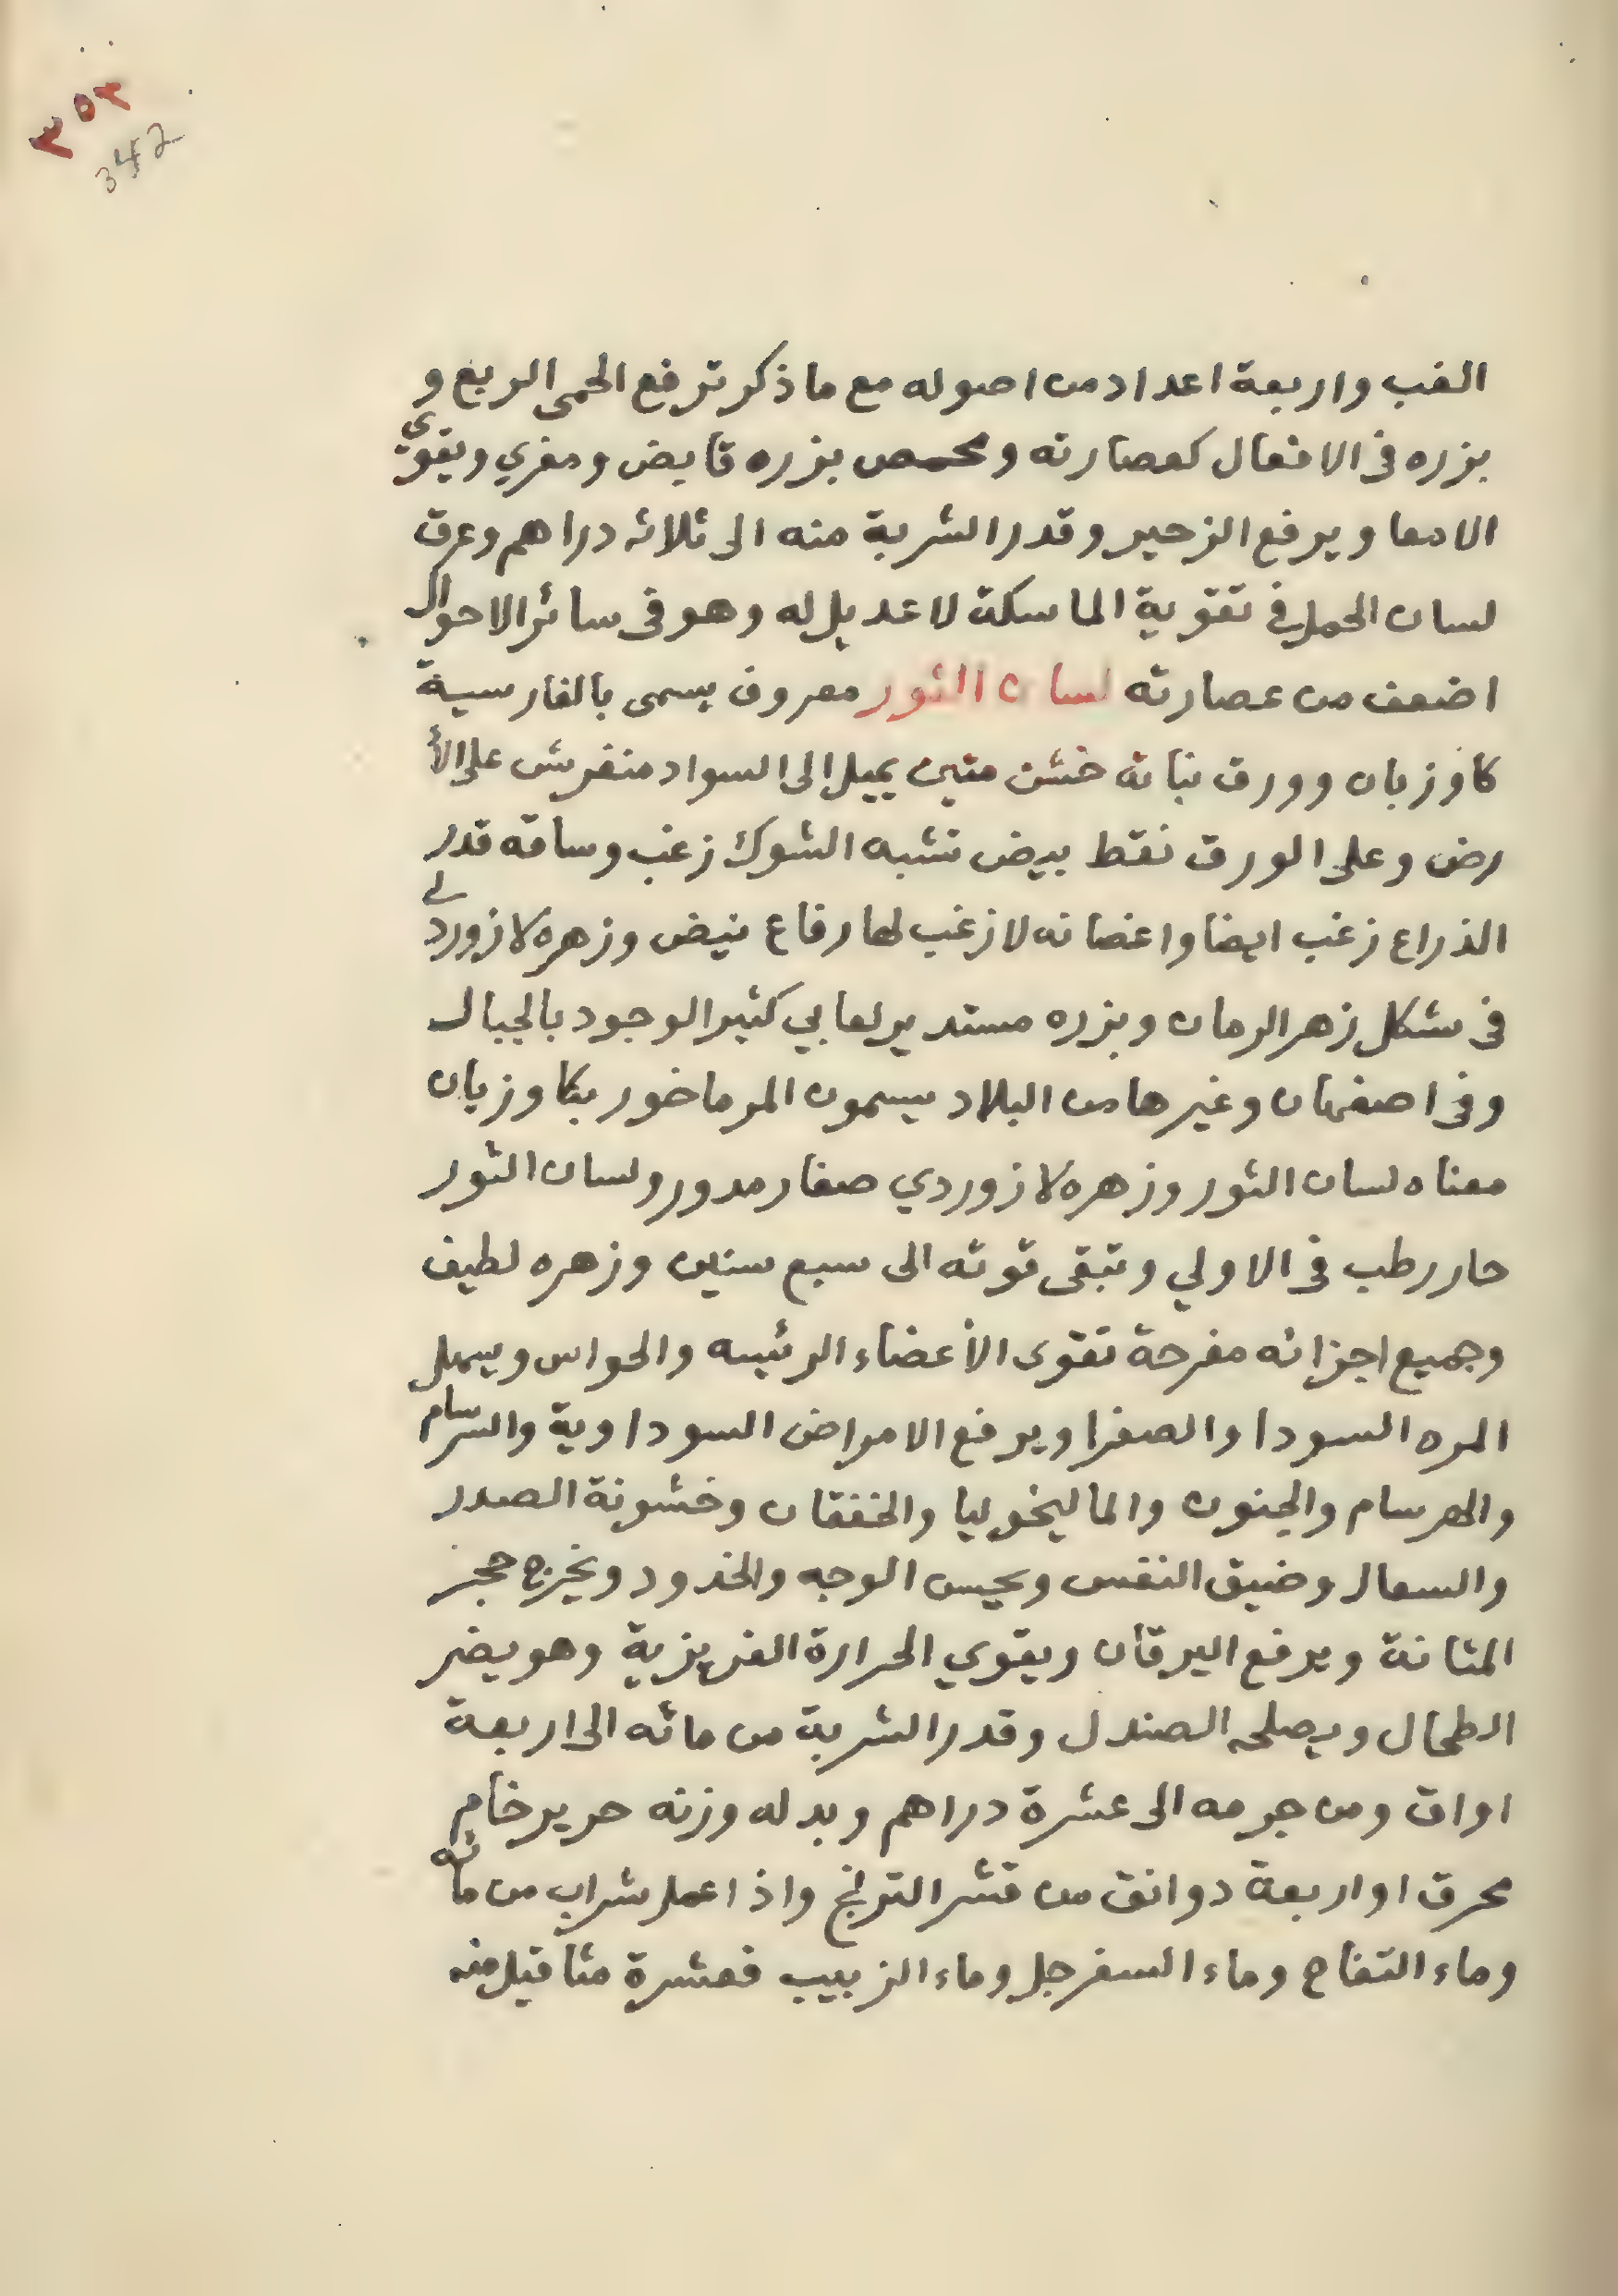 ٣٥٢
342
الغب واربعة اعداد من اصوله مع ما ذكر ترفع الحمى الربع و
بزره فى الافعال كعصارته ومحمص بزره قابض ومغري ويقوي
الامعا ويرفع الزحير وقدر الشربة منه الى ثلاثه دراهم وعرق
لسان الحمل في تقوية الماسكة لا عديل له وهو فى سائر الاحوال
اضعف من عصارته لسان الثور معروف يسمى بالفارسية
كاوزبان وورق نباته خشن متين يميل الى السواد منفرش على الأ
رض وعلى الورق نقط بيض تشبه الشوك زغب وساقه قدر
الذراع زغب ايضا واغصانه لازغب لها رقاع بيض وزهره لازوردي
فى شكل زهر الرمان وبزره مستدير لعابي كثير الوجود بالجبال
وفى اصفهان وغيرها من البلاد يسمون المرماخور بكاوزبان
معناه لسان الثور وزهره لازوردي صغار مدور ولسان الثور
حار رطب فى الاولي وتبقى قوته الى سبع سنين وزهره لطيف
وجميع اجزائه مفرحة تقوى الأعضاء الرئيسه والحواس ويسهل
المره السودا والصفرا ويرفع الامراض السوداوية والسرسام
والهرسام والجنون والماليخوليا والخفقان وخشونة الصدر
والسعال وضيق النفس ويحسن الوجه والخدود ويخرج حجر
المثانة ويرفع اليرقان ويقوي الحرارة الغريزية وهو يضر
الطحال ويصلحه الصندل وقدر الشربة من مائه الى اربعة
اواق ومن جرمه الى عشرة دراهم وبدله وزنه حرير خام
محرق او اربعة دوانق من قشر الترنج واذا عمل شراب من مائه
وماء التفاح وماء السفرجل وماء الزبيب فعشرة مثاقيل منه